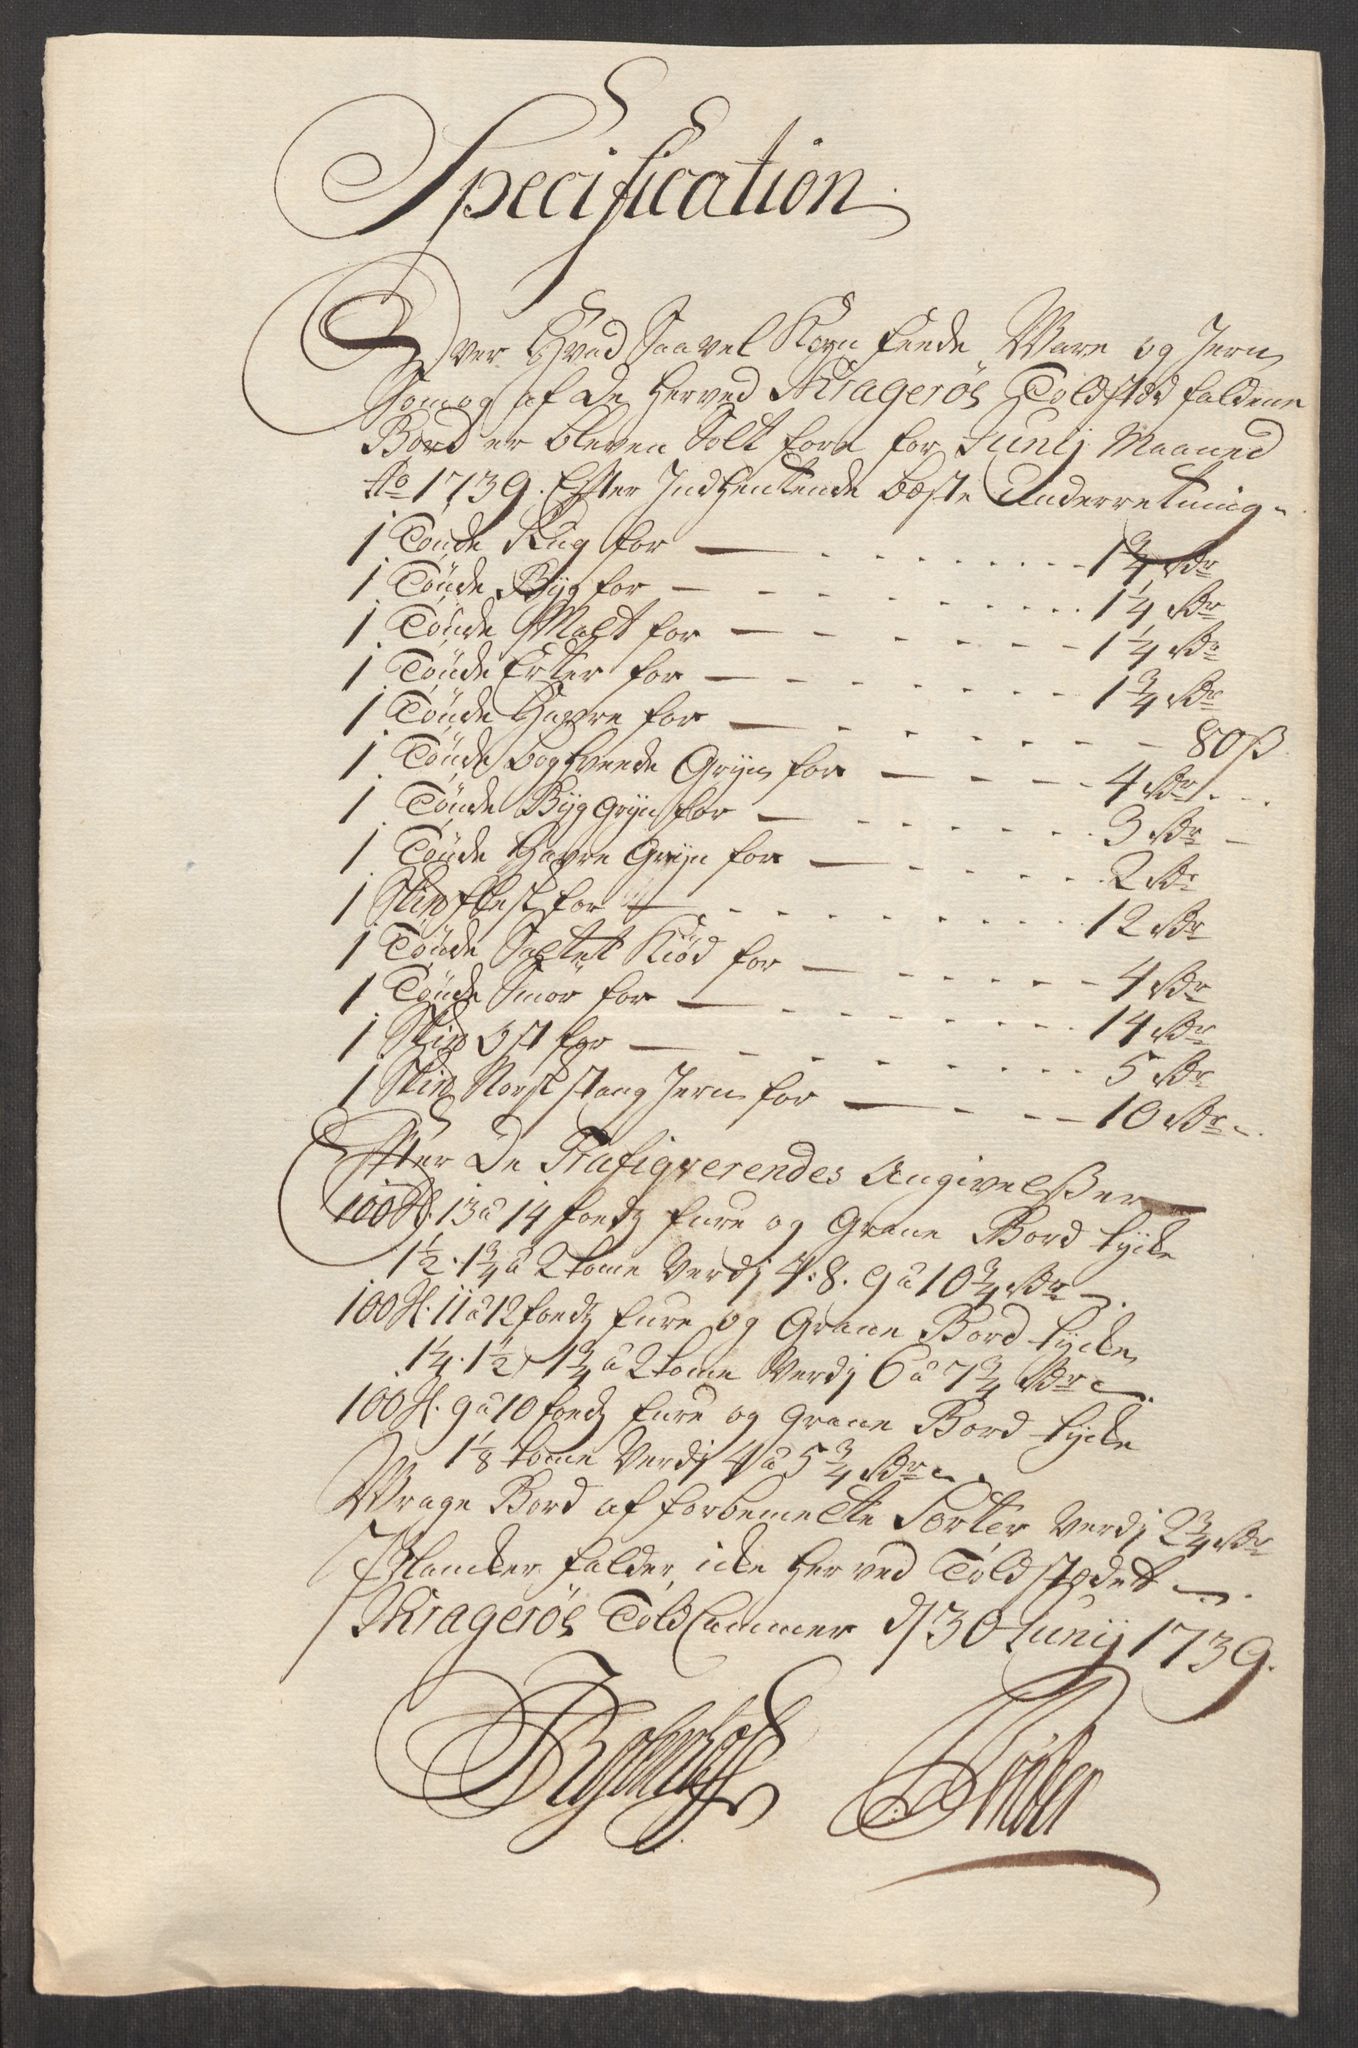 Specification
Over Hvad Saavel Korn feede Ware og Jern
Somog af de Herved Kragerøes Toldsted faldene
Bord er bleven Solt fore for Junij Maaned
Ao 1739. Efter Indhentende bæste Underretning
1 Tønde Rug for — 1 3/4 Rdr
1 Tønde Byg for — 1 1/4 Rdr
1 Tønde Malt for — 1 1/4 Rdr
1 Tønde Erter for — 1 3/4 Rdr
1 Tønde Havre for — 80 ß
1 Tønde boghveede Gryn for — 4 Rdr
1 Tønde Byg Gryn for — 3 Rdr
1 Tønde Havre Gryn for — 2 Rdr
1 Skið flesk for — 12 Rdr
1 Tønde Saltet Kiød for — 4 Rdr
1 Tønde Smør for — 14 Rdr
1 Skið Ost for — 5 Rdr
1 Skið Norsk stang Jern for — 10 Rdr
Efter De Trafiqverendes Angivelßer
100 St. 13 a 14 foedz fure og Grane Bord tycke
1 1/2. 1 3/4 a 2 tome Verdj 7. 8. 9 a 10 3/4 Rdr
100 St. 11 a 12 foedz fure og Grane Bord tycke
1 1/4. 1 1/2. 1 3/4 a 2 tome Verdj 6 a 7 3/4 Rdr
100 St. 9 a 10 foedz fure og Grane Bord tycke
1 1/8 tome Verdj 4 a 5 3/4 Rdr
Wrage Bord af forbemelte Sorter Verdj 2 3/4 Rdr
Plancker falder icke Her ved Toldstædet
Kragerøes Told Cammer d 30 Junij 1739.